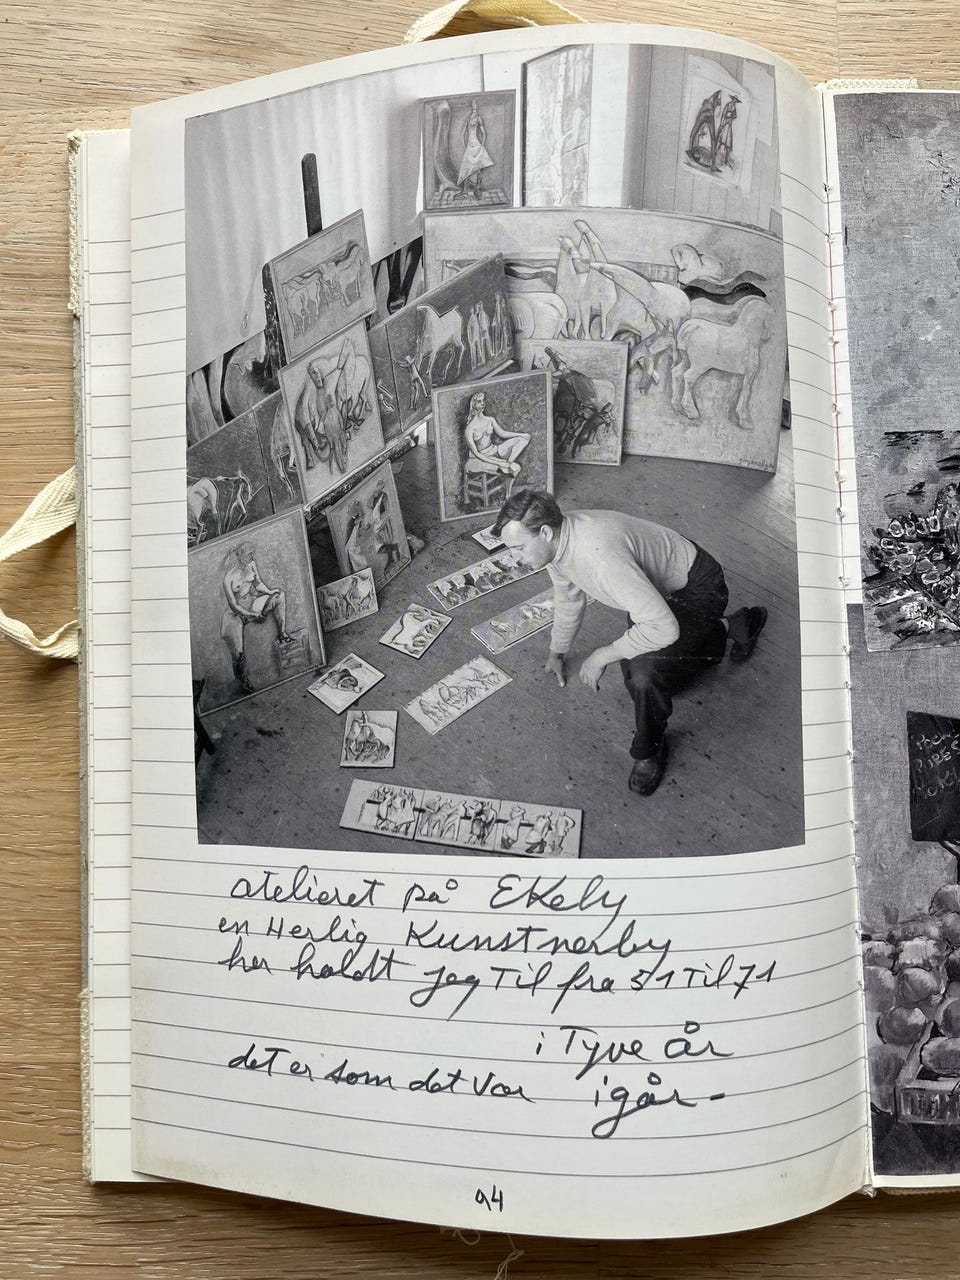 atelieret på Ekely
en Herlig Kunstnerby
her holdt jeg Til fra 51 Til 71
i Tyve år
det er som det var igår-
94